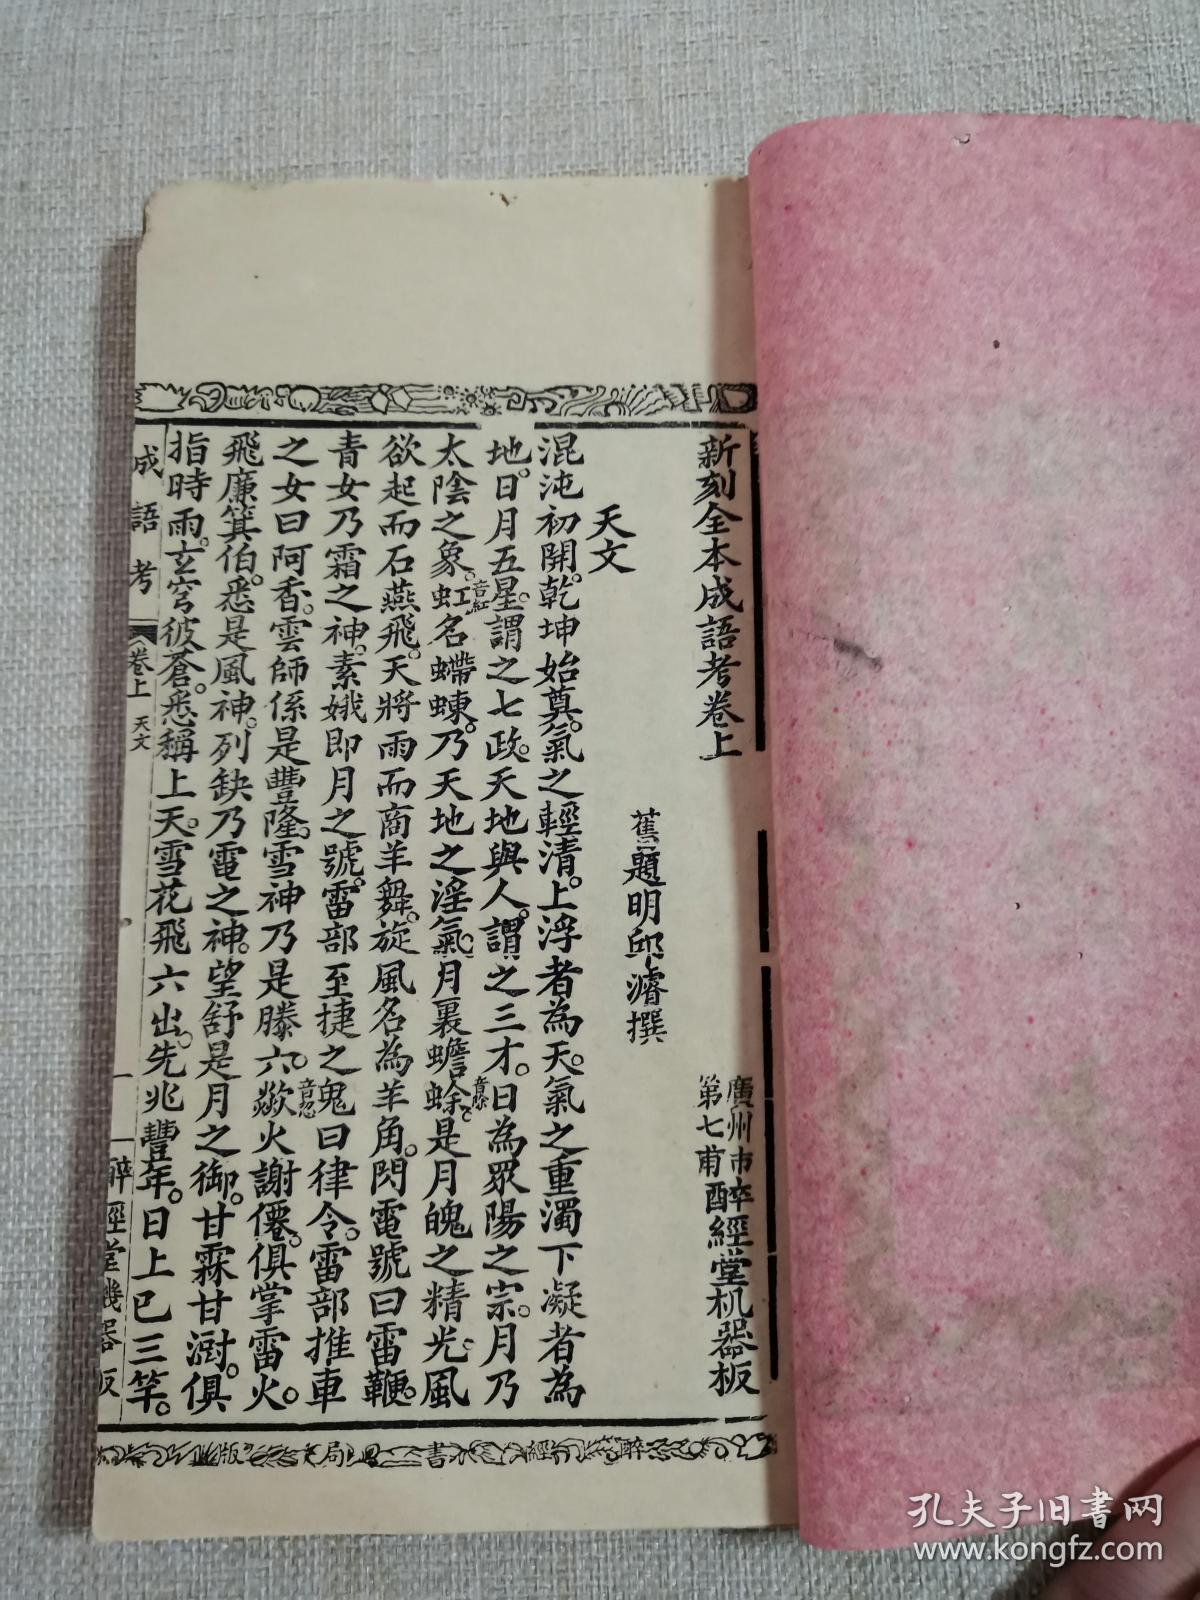 新刻全本成語考卷上
廣州市
第七甫
醉經堂机器板
舊題明邱濬撰
天文
混沌初開。乾坤始奠。氣之輕清。上浮者為天。氣之重濁下凝者為
地。日月五星。謂之七政。天地與人。謂之三才。日為眾陽之宗。月乃
太陰之象。虹音紅名螮蝀。乃天地之淫氣。月裏蟾蜍音除。是月魄之精光。風
欲起而石燕飛。天將雨而商羊舞。旋風名為羊角。閃電號曰雷鞭。
青女乃霜之神。素娥即月之號。雷部至捷之鬼曰律令。雷部推車
之女曰阿香。雲師係是豐隆。雪神乃是滕六。歘音忽火謝僊。俱掌雷火。
飛廉箕伯。悉是風神。列缺乃電之神。望舒是月之御。甘霖甘澍。俱
指時雨。玄穹彼蒼。悉稱上天。雪花飛六出。先兆豐年。日上已三竿。
成語考 卷上 天文 一 醉經堂機器板
版 局 書 經 醉
孔夫子旧书网
www.kongfz.com